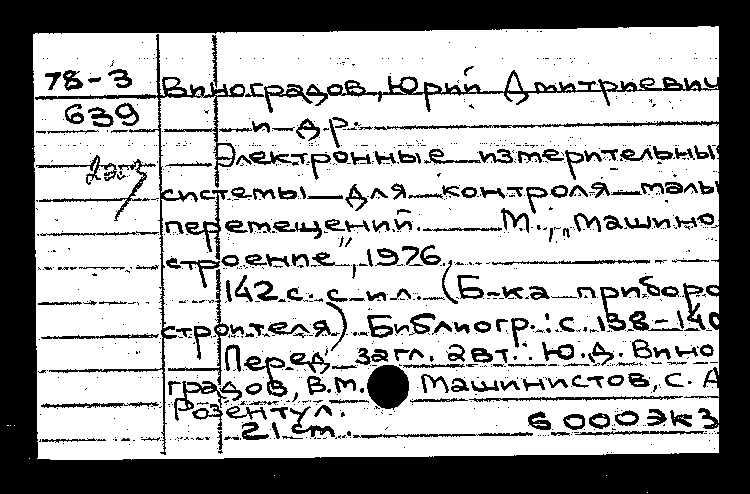 78-3 Виноградов, Юрий Дмитриевич
639
и др.
Электронные измерительны
системы для контроля малы
перемещений. М., „Машино
строение", 1976.
142 с. с ил. (Б-ка приборо
строителя). Библиогр.: с. 138-140
Перед загл. авт.: Ю.Д. Вино
градов, В.М. Машинистов, С. А
Розентул.
21 cm. 6 000 экз